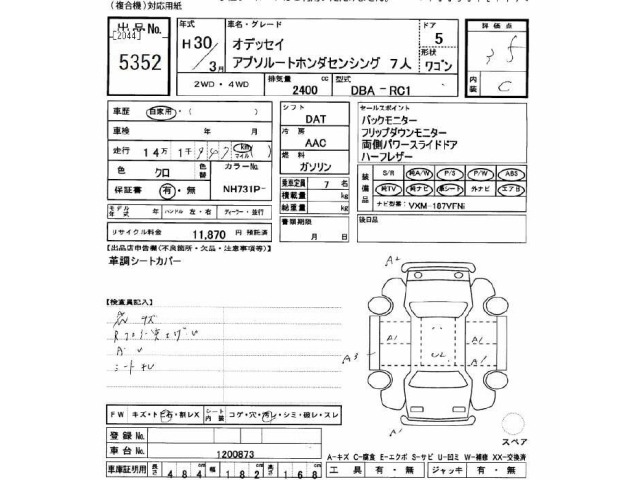 (複合機)対応用紙
出品No.
[2044]
5352
年式
H30/3月
車名・グレード
オデッセイ
アブソルートホンダセンシング 7人
ドア
5
形状
ワゴン
評価点
内装
C
2WD・4WD
排気量
2400 cc
型式
DBA - RC1
車歴
自家用・(
車検 年 月
走行 14万 1千 km マイル
色 クロ
色替
カラーNo.
NH731P-
保証書 有・無
モデル年式 年 ハンドル 左・右 ディーラー・並行
リサイクル料金 11,870 円 預託済
シフト
DAT
冷房
AAC
燃料
ガソリン
乗車定員 7 名
積載量 kg
総重量 kg
書類期限
月 日
セールスポイント
バックモニター
フリップダウンモニター
両側パワースライドドア
ハーフレザー
装備品
S/R 純A/W P/S P/W ABS
純TV 純ナビ 革シート 外ナビ エアB
ナビ型番: VXM-187VFNi
後日品
【出品店申告欄(不良箇所・欠品・注意事項等)】
革調シートカバー
【検査員記入】
シートヤレ
FW キズ・トビ石・割レX
シート内装 コゲ・穴・汚レ・シミ・破レ・スレ
登録No.
車台No. 1200873
車庫証明用 長さ 484 cm 幅 182 cm 高さ 168 cm
A2
A1 A1
A3
UL
A1 A1
A1
スペア
A-キズ C-腐食 E-エクボ S-サビ U-凹ミ W-補修 XX-交換済
工具 有・無 ジャッキ 有・無